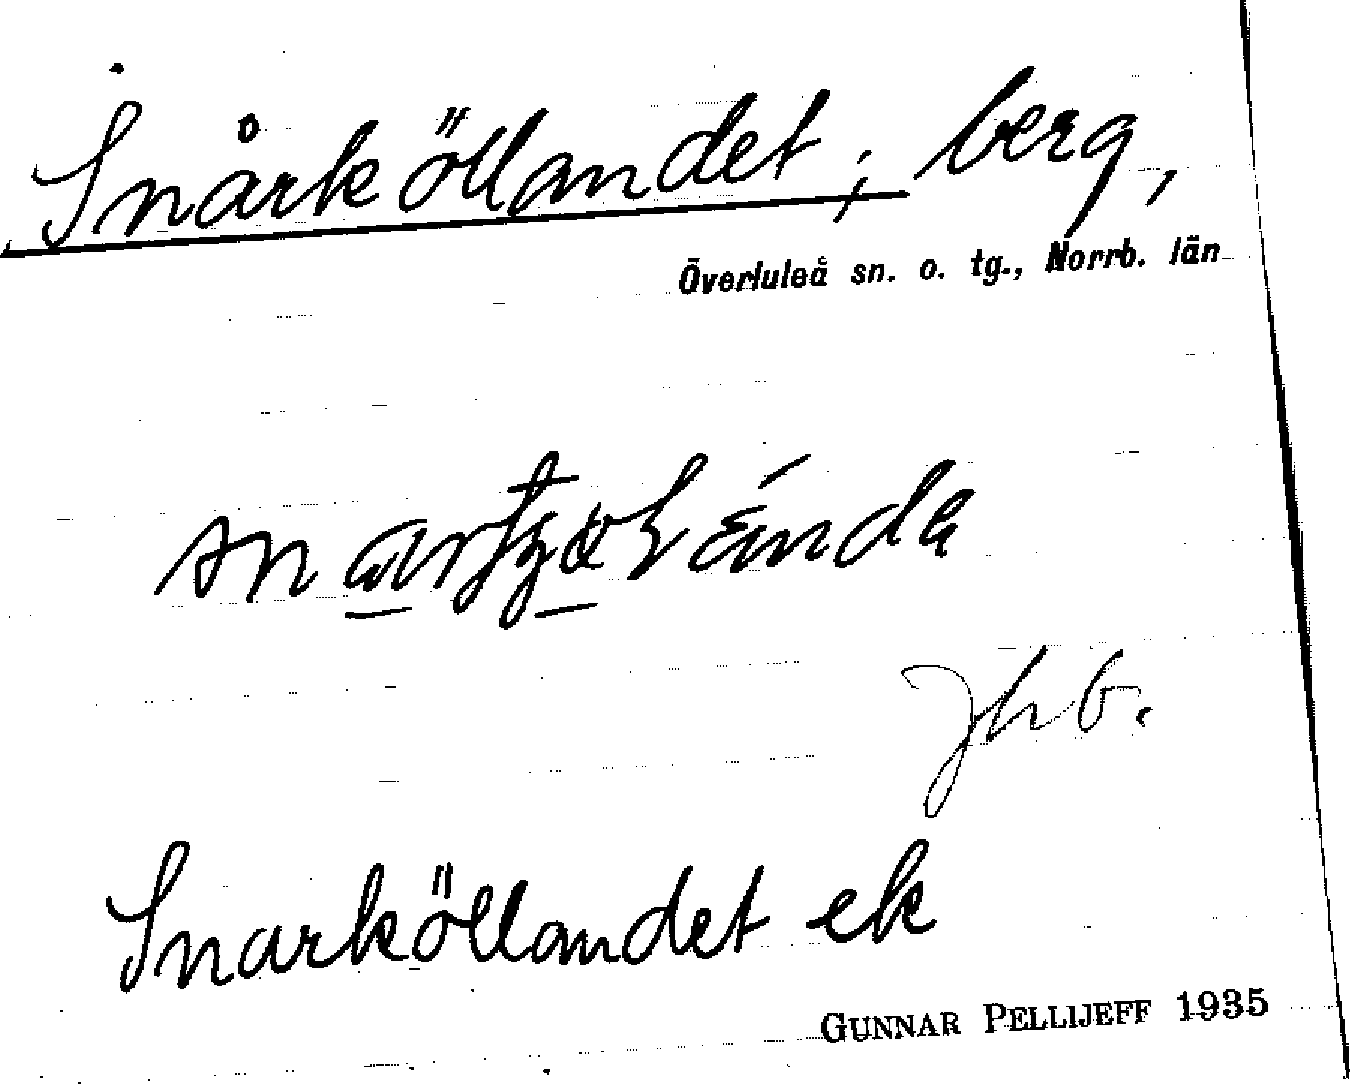 Snårköllandet; berg,
Överluleå sn. o. tg., Norrb. län
Jhb.
Snarköllandet ek
GUNNAR PELLIJEFF 1935